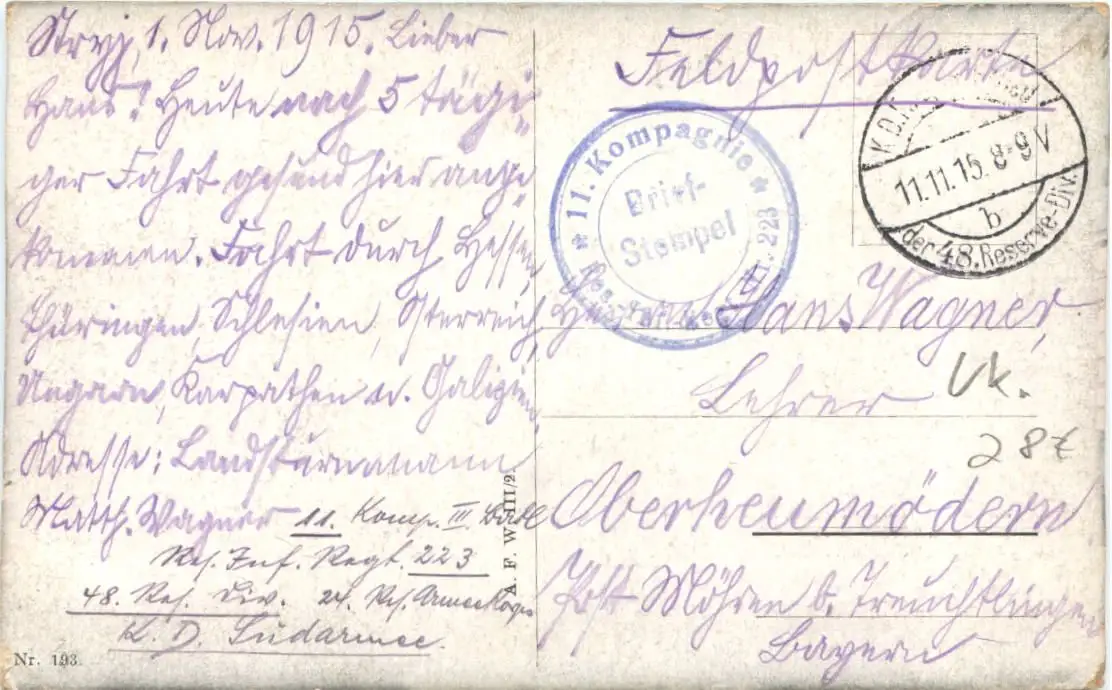 Stryj, 1. Nov. 1915. Lieber
Hans! Heute nach 5 tägi-
ger Fahrt gesund hier ange-
kommen. Fahrt durch Hessen,
Thüringen, Schlesien, Österreich,
Ungarn, Karpathen u. Galizien.
Adresse: Landsturmmann
Matth. Wagner 11. Komp. III. Batl
Res. Inf. Regt. 223
48. Res. Div. 24. Res. Armeekorps
K. D. Südarmee.
Nr. 193.
A. F. W. III/2.
Feldpostkarte
* 11. Kompagnie *
Brief-
Stempel
Res. 223
K.D.
11.11.15. 8-9 V
b
der 48. Reserve-Div.
Hans Wagner,
Lehrer
Vk.
28€
Oberheumödern
Post Möhren b. Treuchtlingen
Bayern